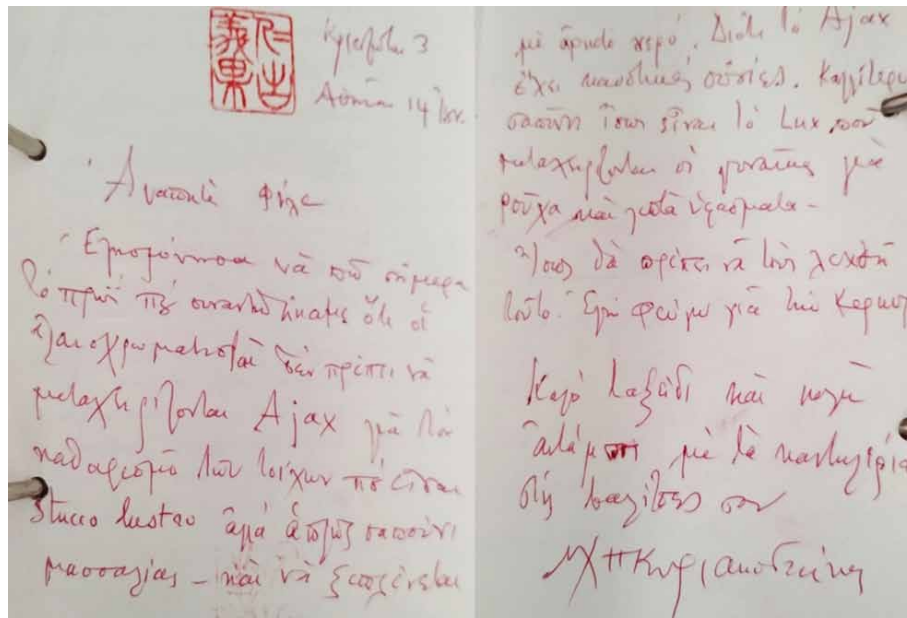 仁吉
義果
Κριεζώτου 3
Αθήνα 14 Ιαν.
Αγαπητέ φίλε
Ελησμόνησα νὰ πῶ σήμερα
τὸ πρωῒ πὺ συναντηθήκαμε ὅτι οἱ
ἐλαιοχρωματισταὶ δὲν πρέπει νὰ
μεταχειρίζονται Ajax γιὰ τὸν
καθαρισμὸ τῶν τοίχων πὺ εἶναι
Stucco lustro ἀλλὰ ἁπλῶς σαπούνι
μασσαλίας – καὶ νὰ ξεπλένεται
μὲ ἄφθονο νερό. Διότι τὸ Ajax
ἔχει καυστικὲς οὐσίες. Καλλίτερο
σαπούνι ἴσως εἶναι τὸ Lux ποὺ
μεταχειρίζονται οἱ γυναῖκες γιὰ
ροῦχα καὶ λεπτὰ ὑφάσματα –
Ἴσως θὰ πρέπει νὰ τοὺς λεχθῆ
τοῦτο. Ἐγὼ φεύγω γιὰ τὴν
Καλὸ ταξίδι καὶ καλὴ
ἀντάμωση μὲ τὰ
στὶς βαλίτσες σου